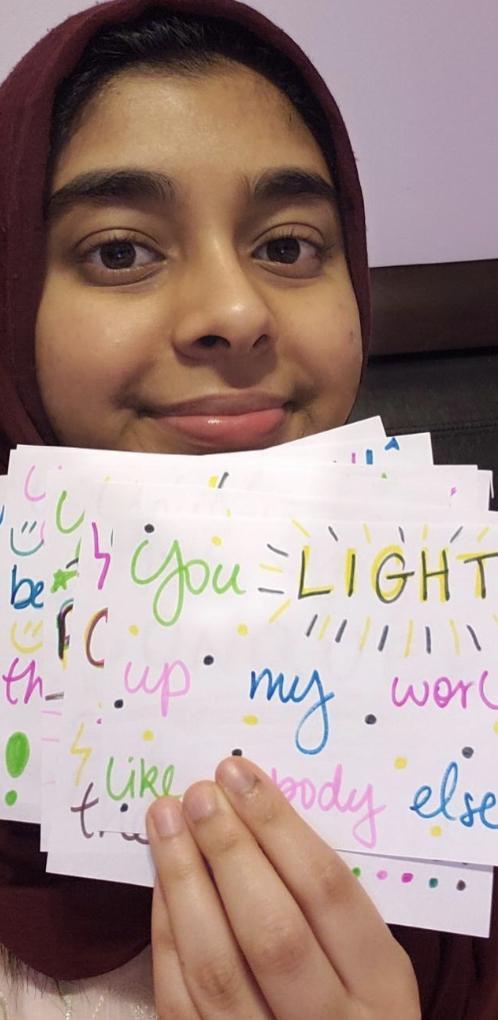 You LIGHT
up my worl
like body else
be
th